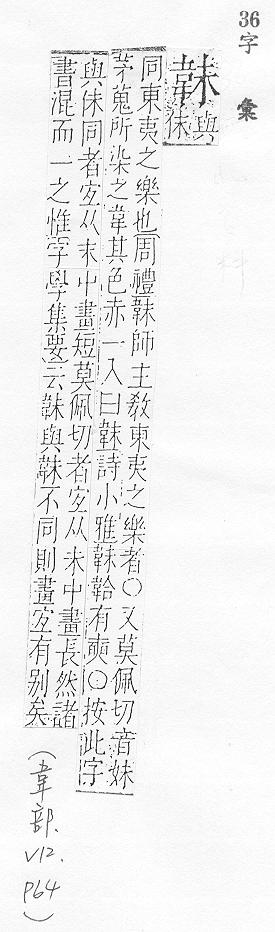 36字彙
韎與佅
同東夷之樂也周禮韎師主教東夷之樂者○又莫佩切音妹
茅蒐所染之韋其色赤一入曰韎詩小雅韎韐有奭○按此字
與佅同者宐从末中畫短莫佩切者宐从未中畫長然諸
書混而一之惟字學集要云韎與韎不同則畫宐有別矣
(韋部. V12. P64)